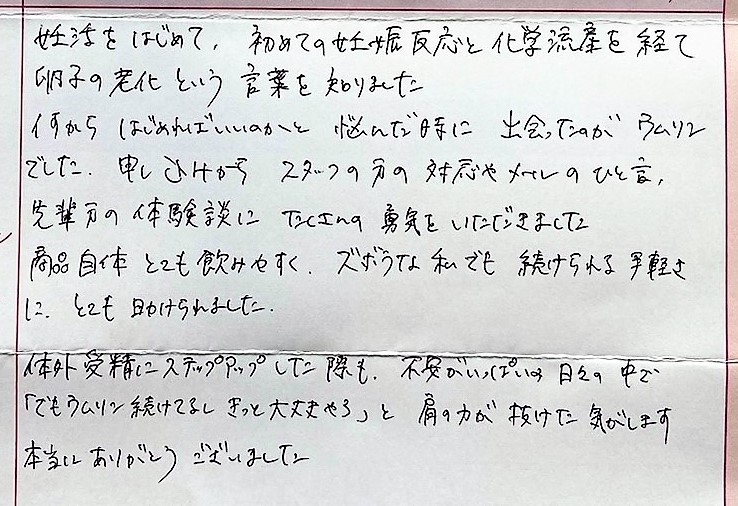 妊活をはじめて、初めての妊娠反応と化学流産を経て
卵子の老化という言葉を知りました
何からはじめればいいのかと悩んだ時に出会ったのがウムリン
でした。申し込みからスタッフの方の対応やメールのひと言、
先輩方の体験談にたくさんの勇気をいただきました
商品自体とても飲みやすく、ズボラな私でも続けられる手軽さ
に、とても助けられました。
体外受精にステップアップした際も、不安がいっぱいの日々の中で
「でもウムリン続けてるし きっと大丈夫やろ」と肩の力が抜けた気がします
本当にありがとうございました